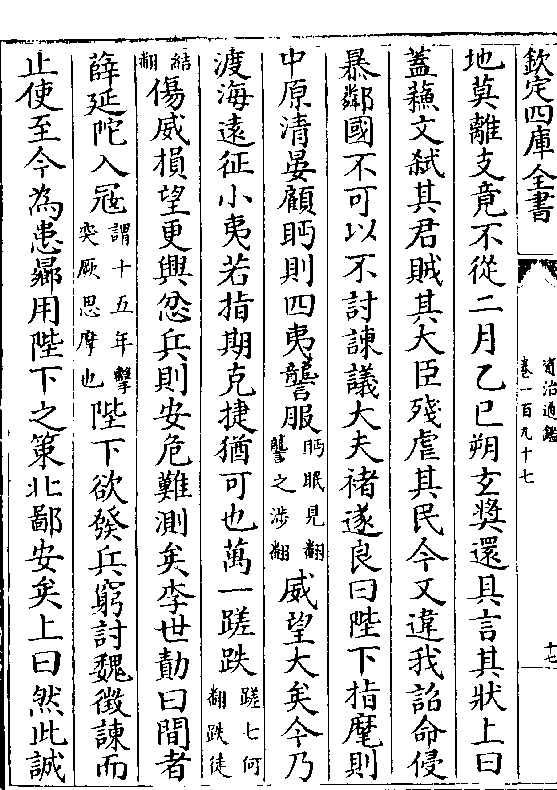 欽定四庫全書
資治通鑑
卷一百九十七
十七
地莫離支竟不從二月乙巳朔玄奬還具言其狀上曰
蓋蘇文弑其君賊其大臣殘虐其民今又違我詔命侵
暴鄰國不可以不討諫議大夫禇遂良曰陛下指麾則
中原清晏顧眄則四夷讋服眄眠見翻讋之涉翻威望大矣今乃
渡海遠征小夷若指期克捷猶可也萬一蹉跌蹉七何翻跌徒
結翻傷威損望更興忿兵則安危難測矣李世勣曰間者
薛延陀入寇謂十五年擊突厥思摩也陛下欲發兵窮討魏徵諫而
止使至今為患曏用陛下之策北鄙安矣上曰然此誠